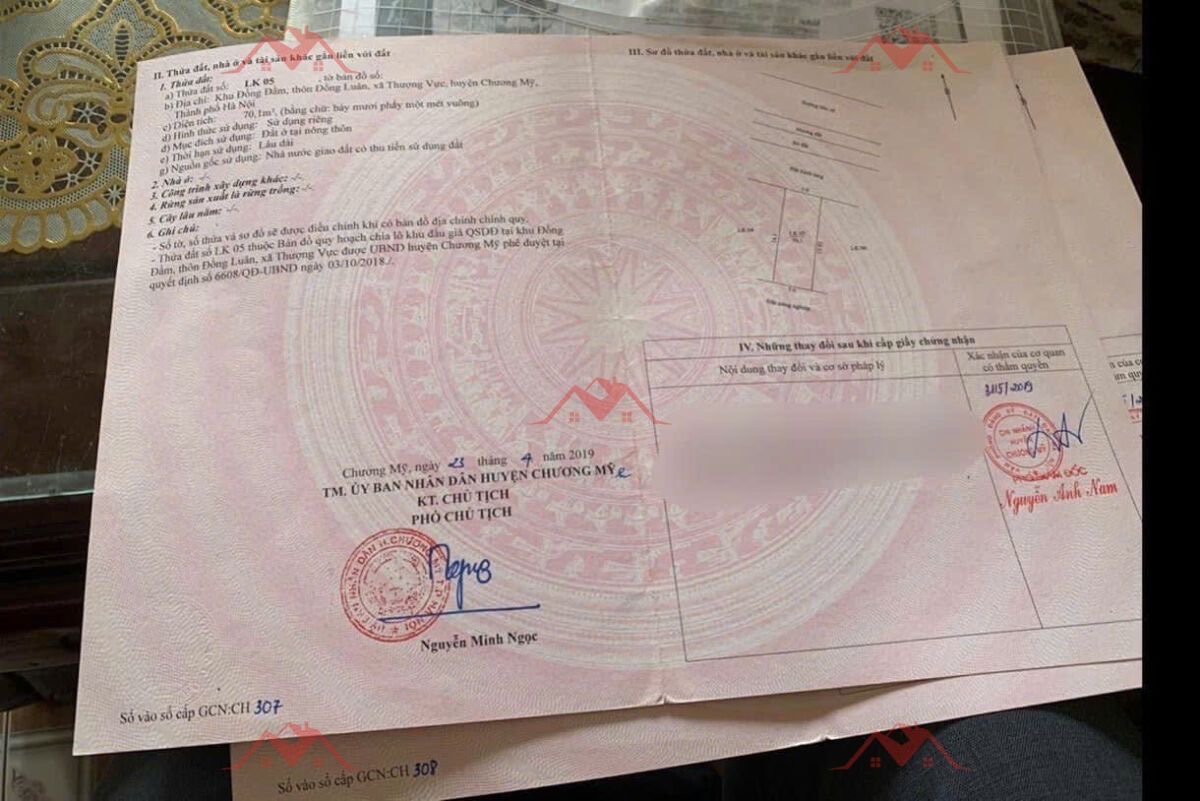 II. Thửa đất, nhà ở và tài sản khác gắn liền với đất
1. Thửa đất:
a) Thửa đất số: LK 05 , tờ bản đồ số:
b) Địa chỉ: Khu Đồng Đầm, thôn Đồng Luân, xã Thượng Vực, huyện Chương Mỹ,
Thành phố Hà Nội
c) Diện tích: 70,1m², (bằng chữ: bảy mươi phẩy một mét vuông)
d) Hình thức sử dụng: Sử dụng riêng
đ) Mục đích sử dụng: Đất ở tại nông thôn
e) Thời hạn sử dụng: Lâu dài
g) Nguồn gốc sử dụng: Nhà nước giao đất có thu tiền sử dụng đất
2. Nhà ở: -/-
3. Công trình xây dựng khác: -/-
4. Rừng sản xuất là rừng trồng: -/-
5. Cây lâu năm: -/-
6. Ghi chú:
- Số tờ, số thửa và sơ đồ sẽ được điều chỉnh khi có bản đồ địa chính chính quy.
- Thửa đất số LK 05 thuộc Bản đồ quy hoạch chia lô khu đấu giá QSDĐ tại khu Đồng
Đầm, thôn Đồng Luân, xã Thượng Vực được UBND huyện Chương Mỹ phê duyệt tại
quyết định số 6608/QĐ-UBND ngày 03/10/2018./.
Chương Mỹ, ngày 23 tháng 4 năm 2019
TM. ỦY BAN NHÂN DÂN HUYỆN CHƯƠNG MỸ
KT. CHỦ TỊCH
PHÓ CHỦ TỊCH
Nguyễn Minh Ngọc
Số vào sổ cấp GCN:CH 307
Số vào sổ cấp GCN:CH 308
III. Sơ đồ thửa đất, nhà ở và tài sản khác gắn liền với đất
LK 05
IV. Những thay đổi sau khi cấp giấy chứng nhận
Nội dung thay đổi và cơ sở pháp lý
Xác nhận của cơ quan
có thẩm quyền
CHI NHÁNH
HUYỆN
CHƯƠNG MỸ
PHÓ GIÁM ĐỐC
Nguyễn Anh Nam